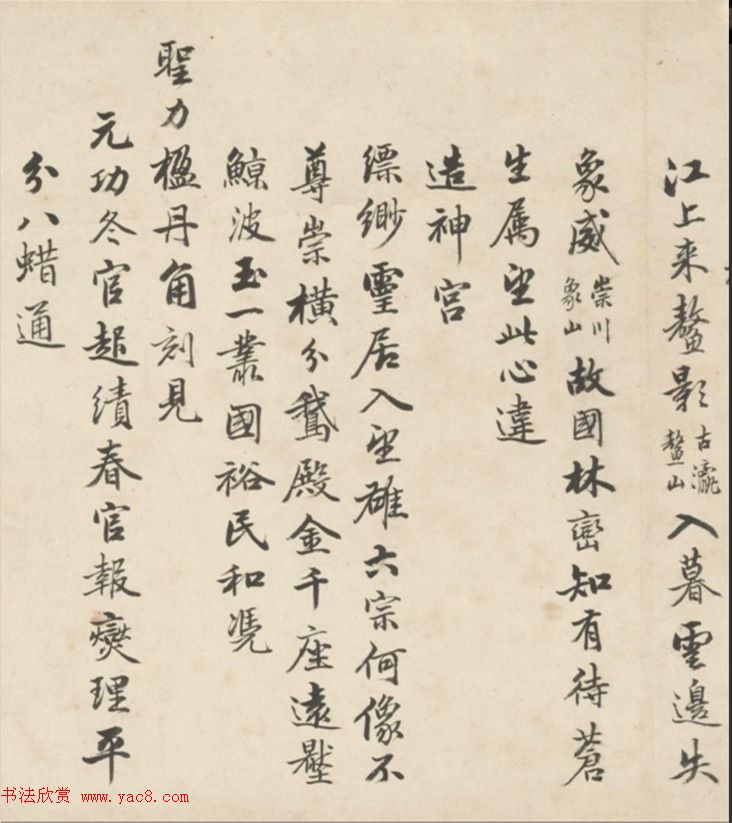 江上来鰲影古瀛鰲山入暮雲邊失
象威崇川象山故國林巒知有待蒼
生属望此心違
造神宫
缥缈靈居入望雄六宗何像不
尊崇横分鵞殿金千座遠壓
鯨波玉一叢國裕民和凴
聖力楹丹角刻見
元功冬官起績春官報爕理平
分八蜡通
书法欣赏 www.yac8.com